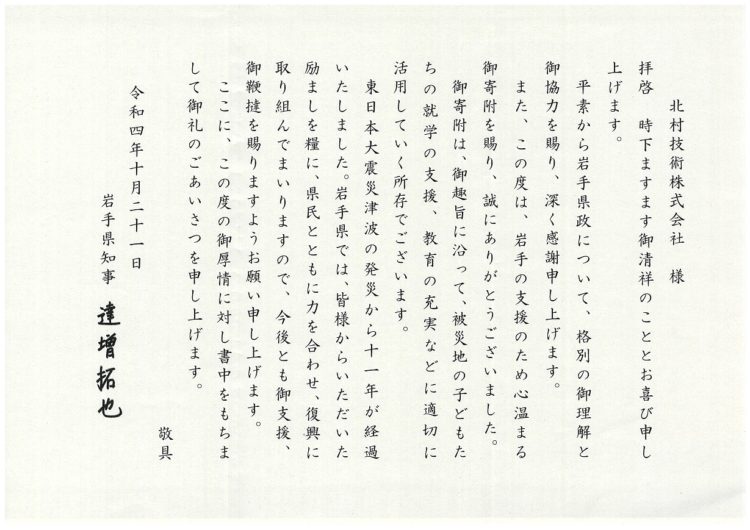 北村技術株式会社　様
拝啓　時下ますます御清祥のこととお喜び申し
上げます。
平素から岩手県政について、格別の御理解と
御協力を賜り、深く感謝申し上げます。
また、この度は、岩手の支援のため心温まる
御寄附を賜り、誠にありがとうございました。
御寄附は、御趣旨に沿って、被災地の子どもた
ちの就学の支援、教育の充実などに適切に
活用していく所存でございます。
東日本大震災津波の発災から十一年が経過
いたしました。岩手県では、皆様からいただいた
励ましを糧に、県民とともに力を合わせ、復興に
取り組んでまいりますので、今後とも御支援、
御鞭撻を賜りますようお願い申し上げます。
ここに、この度の御厚情に対し書中をもちま
して御礼のごあいさつを申し上げます。
敬具
令和四年十月二十一日
岩手県知事　達増拓也